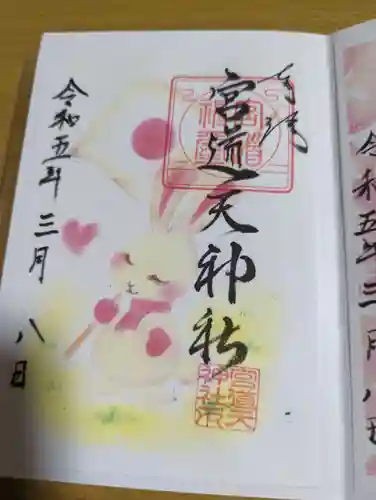 奉拝
宮道天神社
令和五年三月八日
令和五年三月八日